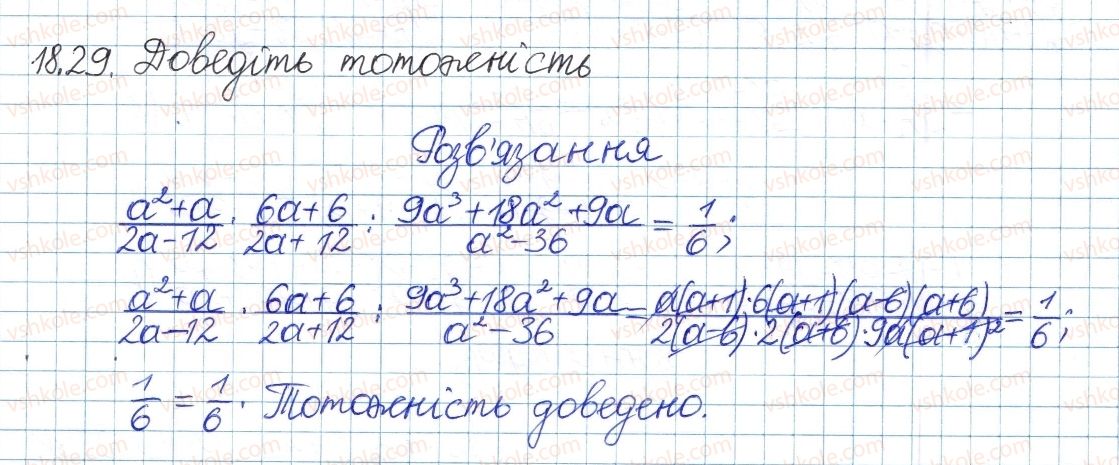 18.29. Доведіть тотожність
Розв'язання
(a²+a)/(2a-12) · (6a+6)/(2a+12) : (9a³+18a²+9a)/(a²-36) = 1/6;
(a²+a)/(2a-12) · (6a+6)/(2a+12) : (9a³+18a²+9a)/(a²-36) = (a(a+1)·6(a+1)(a-6)(a+6))/(2(a-6)·2(a+6)·9a(a+1)²) = 1/6;
1/6 = 1/6. Тотожність доведено.